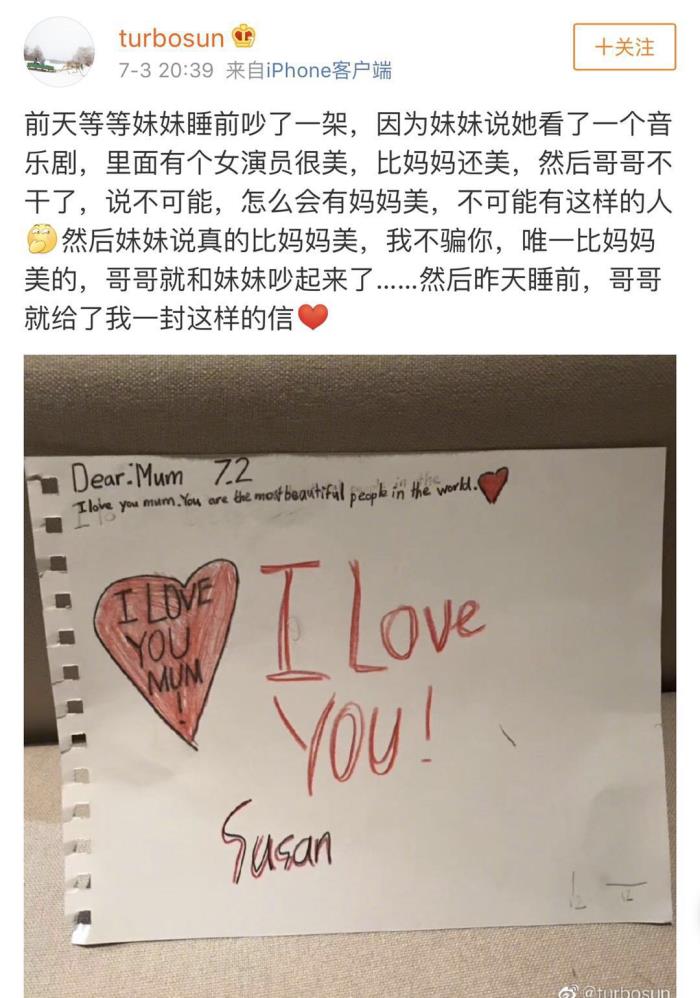 turbosun
十关注
7-3 20:39 来自iPhone客户端
前天等等妹妹睡前吵了一架，因为妹妹说她看了一个音
乐剧，里面有个女演员很美，比妈妈还美，然后哥哥不
干了，说不可能，怎么会有妈妈美，不可能有这样的人
🤔然后妹妹说真的比妈妈美，我不骗你，唯一比妈妈
美的，哥哥就和妹妹吵起来了……然后昨天睡前，哥哥
就给了我一封这样的信❤️
Dear:Mum 7.2
I love you mum.You are the most beautiful people in the world.
I LOVE
YOU
MUM
!
I Love
YOU!
Susan
@turbosun